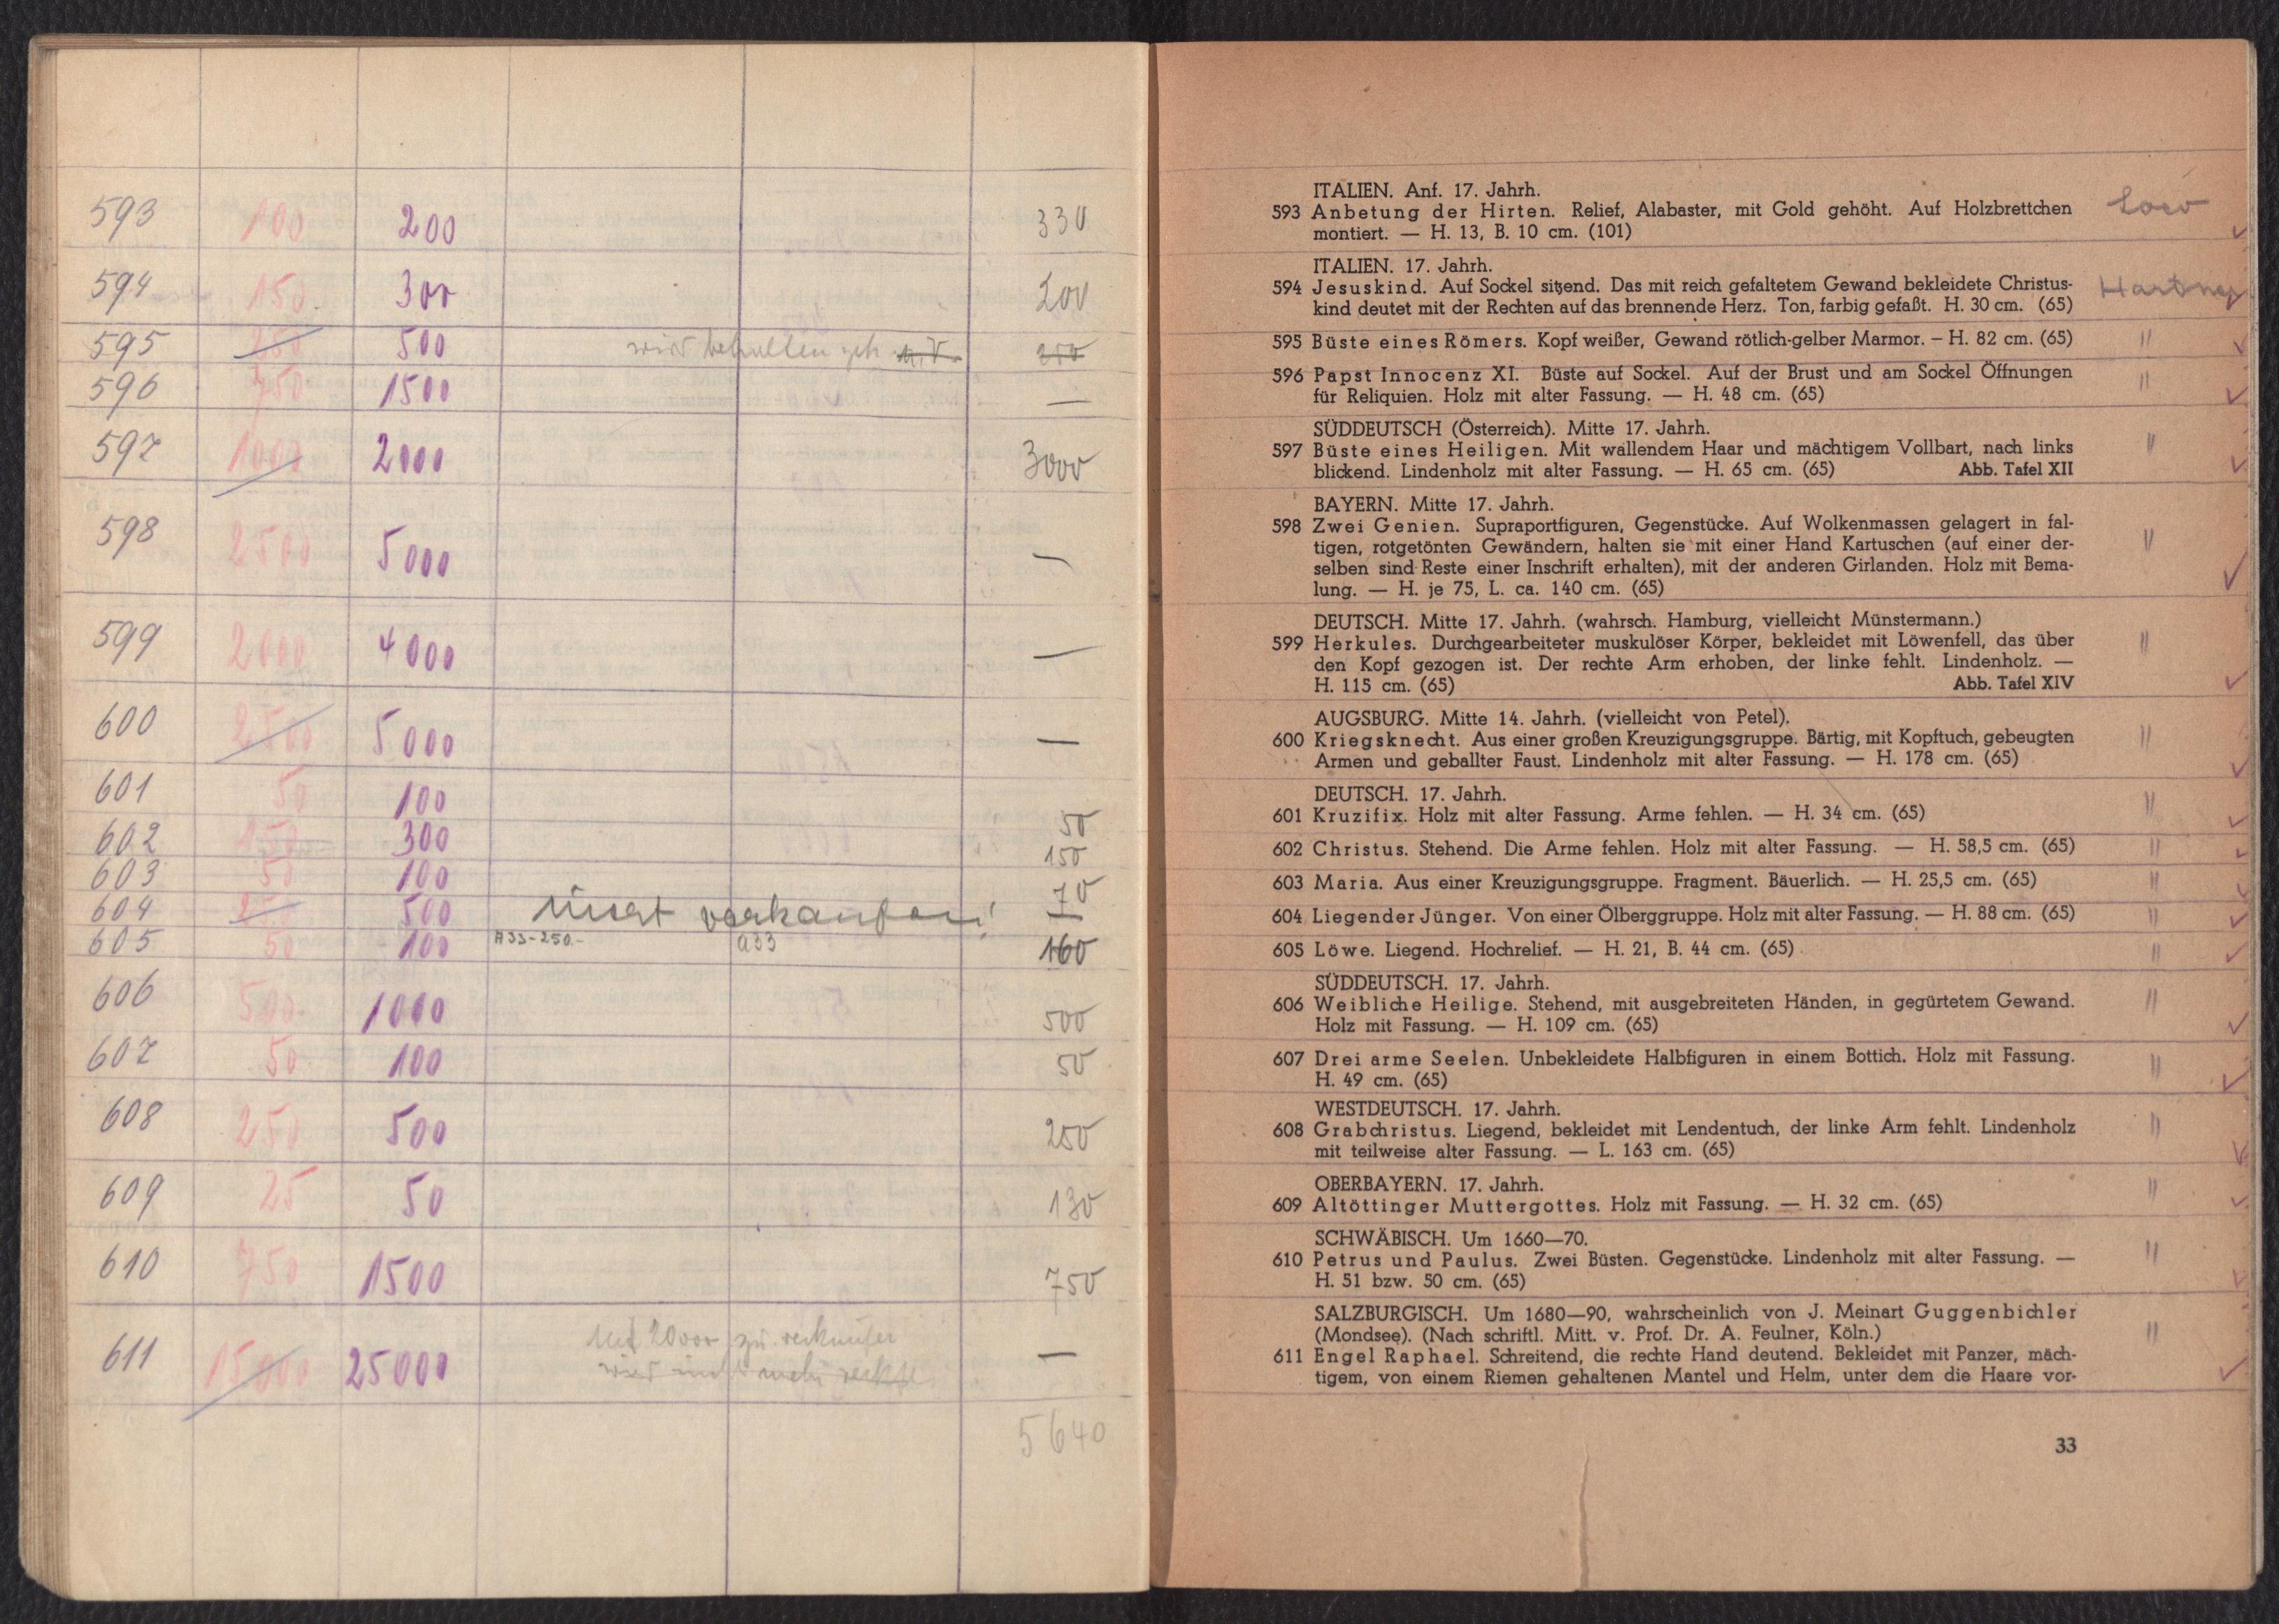 593 100 200 330
594 150 300 200
595 250 500 wird behalten 250
596 750 1500 —
597 1000 2000 3000
598 2500 5000 —
599 2000 4000 —
600 2500 5000 —
601 50 100 50
602 150 300 150
603 50 100 70
604 250 500 nicht verkaufen! —
605 50 100 A33-250.- a33 160
606 500 1000 500
607 50 100 50
608 250 500 250
609 25 50 130
610 750 1500 750
611 15000 25000 mit 20000 zu verkaufen —
wird nicht mehr
5640
ITALIEN. Anf. 17. Jahrh.
593 Anbetung der Hirten. Relief, Alabaster, mit Gold gehöht. Auf Holzbrettchen
montiert. — H. 13, B. 10 cm. (101)
ITALIEN. 17. Jahrh.
594 Jesuskind. Auf Sockel sitzend. Das mit reich gefaltetem Gewand bekleidete Christus-
kind deutet mit der Rechten auf das brennende Herz. Ton, farbig gefaßt. H. 30 cm. (65)
595 Büste eines Römers. Kopf weißer, Gewand rötlich-gelber Marmor. – H. 82 cm. (65) "
596 Papst Innocenz XI. Büste auf Sockel. Auf der Brust und am Sockel Öffnungen "
für Reliquien. Holz mit alter Fassung. — H. 48 cm. (65)
SÜDDEUTSCH (Österreich). Mitte 17. Jahrh.
597 Büste eines Heiligen. Mit wallendem Haar und mächtigem Vollbart, nach links "
blickend. Lindenholz mit alter Fassung. — H. 65 cm. (65) Abb. Tafel XII
BAYERN. Mitte 17. Jahrh.
598 Zwei Genien. Supraportfiguren, Gegenstücke. Auf Wolkenmassen gelagert in fal-
tigen, rotgetönten Gewändern, halten sie mit einer Hand Kartuschen (auf einer der- "
selben sind Reste einer Inschrift erhalten), mit der anderen Girlanden. Holz mit Bema-
lung. — H. je 75, L. ca. 140 cm. (65)
DEUTSCH. Mitte 17. Jahrh. (wahrsch. Hamburg, vielleicht Münstermann.)
599 Herkules. Durchgearbeiteter muskulöser Körper, bekleidet mit Löwenfell, das über "
den Kopf gezogen ist. Der rechte Arm erhoben, der linke fehlt. Lindenholz. —
H. 115 cm. (65) Abb. Tafel XIV
AUGSBURG. Mitte 14. Jahrh. (vielleicht von Petel).
600 Kriegsknecht. Aus einer großen Kreuzigungsgruppe. Bärtig, mit Kopftuch, gebeugten "
Armen und geballter Faust. Lindenholz mit alter Fassung. — H. 178 cm. (65)
DEUTSCH. 17. Jahrh.
601 Kruzifix. Holz mit alter Fassung. Arme fehlen. — H. 34 cm. (65) "
602 Christus. Stehend. Die Arme fehlen. Holz mit alter Fassung. — H. 58,5 cm. (65) "
603 Maria. Aus einer Kreuzigungsgruppe. Fragment. Bäuerlich. — H. 25,5 cm. (65) "
604 Liegender Jünger. Von einer Ölberggruppe. Holz mit alter Fassung. — H. 88 cm. (65) "
605 Löwe. Liegend. Hochrelief. — H. 21, B. 44 cm. (65) "
SÜDDEUTSCH. 17. Jahrh.
606 Weibliche Heilige. Stehend, mit ausgebreiteten Händen, in gegürtetem Gewand. "
Holz mit Fassung. — H. 109 cm. (65)
607 Drei arme Seelen. Unbekleidete Halbfiguren in einem Bottich. Holz mit Fassung. "
H. 49 cm. (65)
WESTDEUTSCH. 17. Jahrh.
608 Grabchristus. Liegend, bekleidet mit Lendentuch, der linke Arm fehlt. Lindenholz "
mit teilweise alter Fassung. — L. 163 cm. (65)
OBERBAYERN. 17. Jahrh.
609 Altöttinger Muttergottes. Holz mit Fassung. — H. 32 cm. (65) "
SCHWÄBISCH. Um 1660—70.
610 Petrus und Paulus. Zwei Büsten. Gegenstücke. Lindenholz mit alter Fassung. — "
H. 51 bzw. 50 cm. (65)
SALZBURGISCH. Um 1680—90, wahrscheinlich von J. Meinart Guggenbichler
(Mondsee). (Nach schriftl. Mitt. v. Prof. Dr. A. Feulner, Köln.) "
611 Engel Raphael. Schreitend, die rechte Hand deutend. Bekleidet mit Panzer, mäch-
tigem, von einem Riemen gehaltenen Mantel und Helm, unter dem die Haare vor-
33